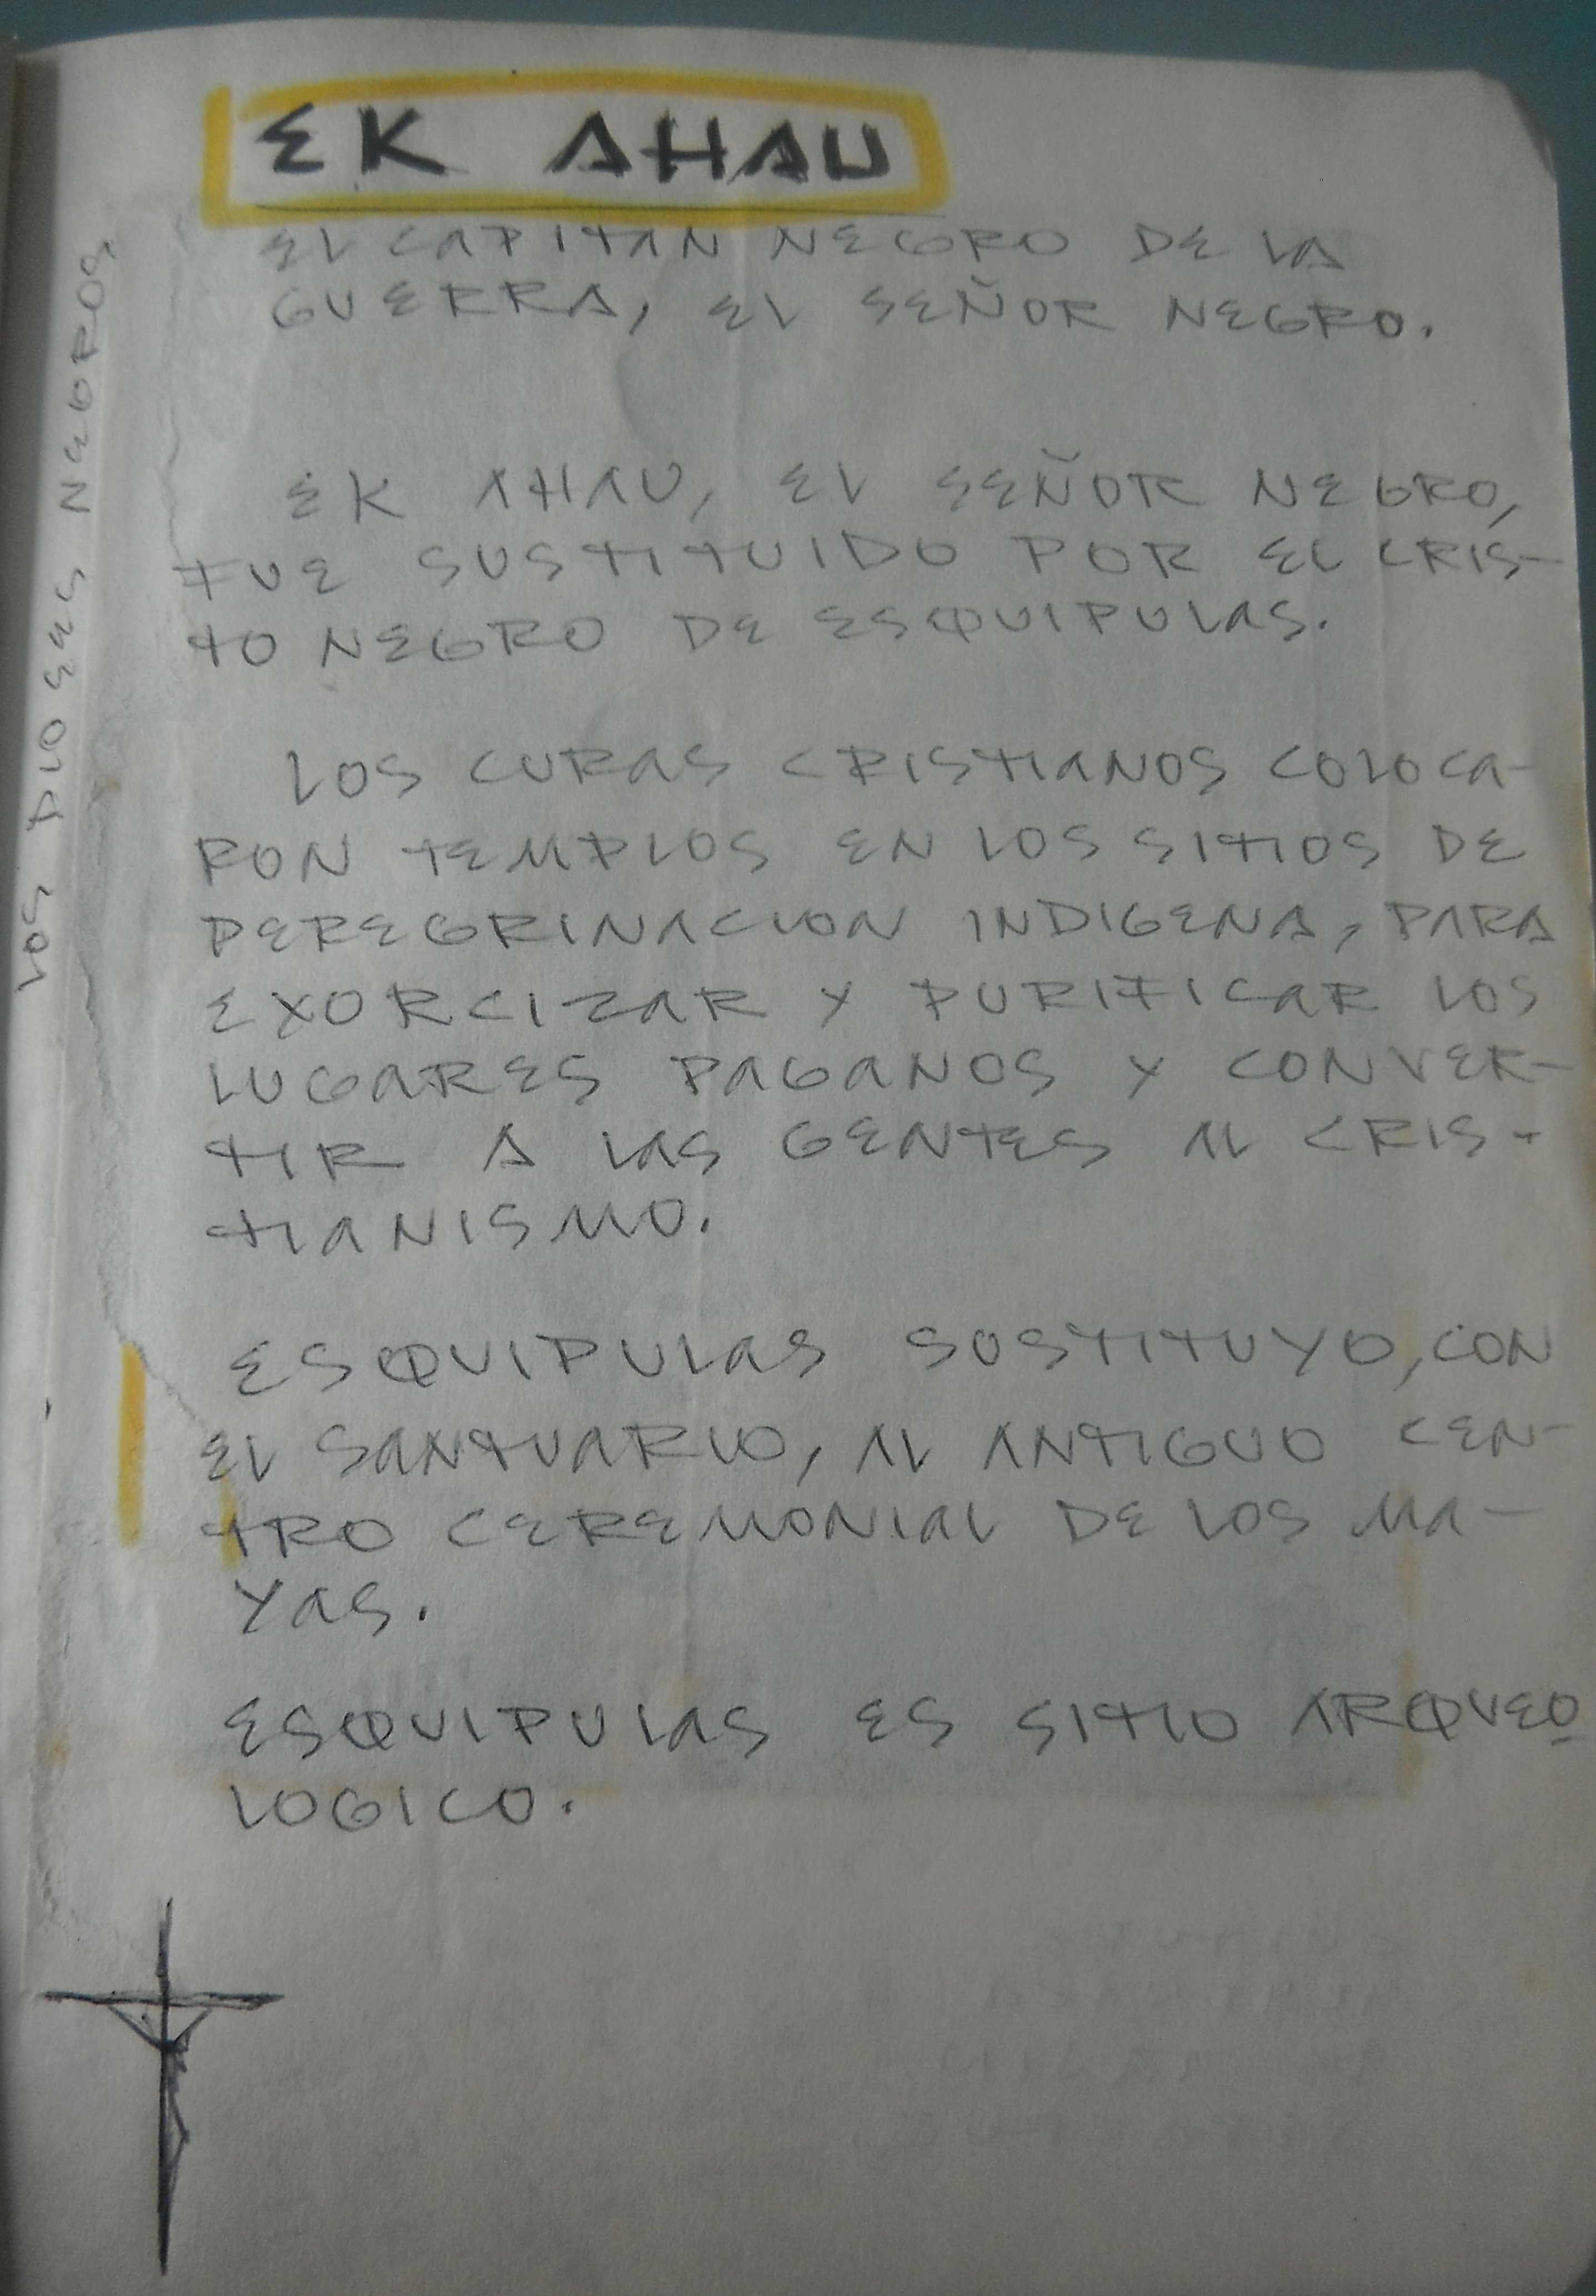 EK AHAU
EL CAPITAN NEGRO DE LA
GUERRA, EL SEÑOR NEGRO.
EK AHAU, EL SEÑOR NEGRO,
FUE SUSTITUIDO POR EL CRIS-
TO NEGRO DE ESQUIPULAS.
LOS CURAS CRISTIANOS COLOCA-
RON TEMPLOS EN LOS SITIOS DE
PEREGRINACION INDIGENA, PARA
EXORCIZAR Y PURIFICAR LOS
LUGARES PAGANOS Y CONVER-
TIR A LAS GENTES AL CRIS-
TIANISMO.
ESQUIPULAS SUSTITUYO, CON
EL SANTUARIO, AL ANTIGUO CEN-
TRO CEREMONIAL DE LOS MA-
YAS.
ESQUIPULAS ES SITIO ARQUEO
LOGICO.
LOS DIOSES NEGROS